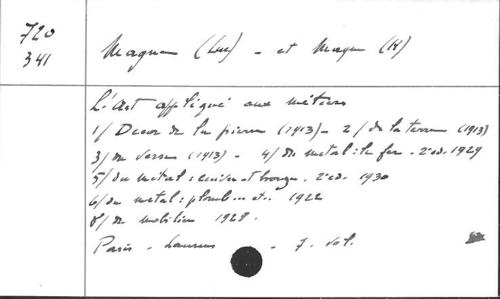 720
341
Magne (Luc) - et Magne (H)
L'Art appliqué aux métiers
1/ Decor de la pierre (1913) - 2/ de la terre (1913)
3/ du verre (1913) - 4/ du metal: le fer - 2e ed. 1929
5/ du metal: cuivre et bronze. 2e ed. 1930
6/ du metal: plomb... et.. 1922
8/ du mobilier 1928.
Paris - Laurens - 7. vol.